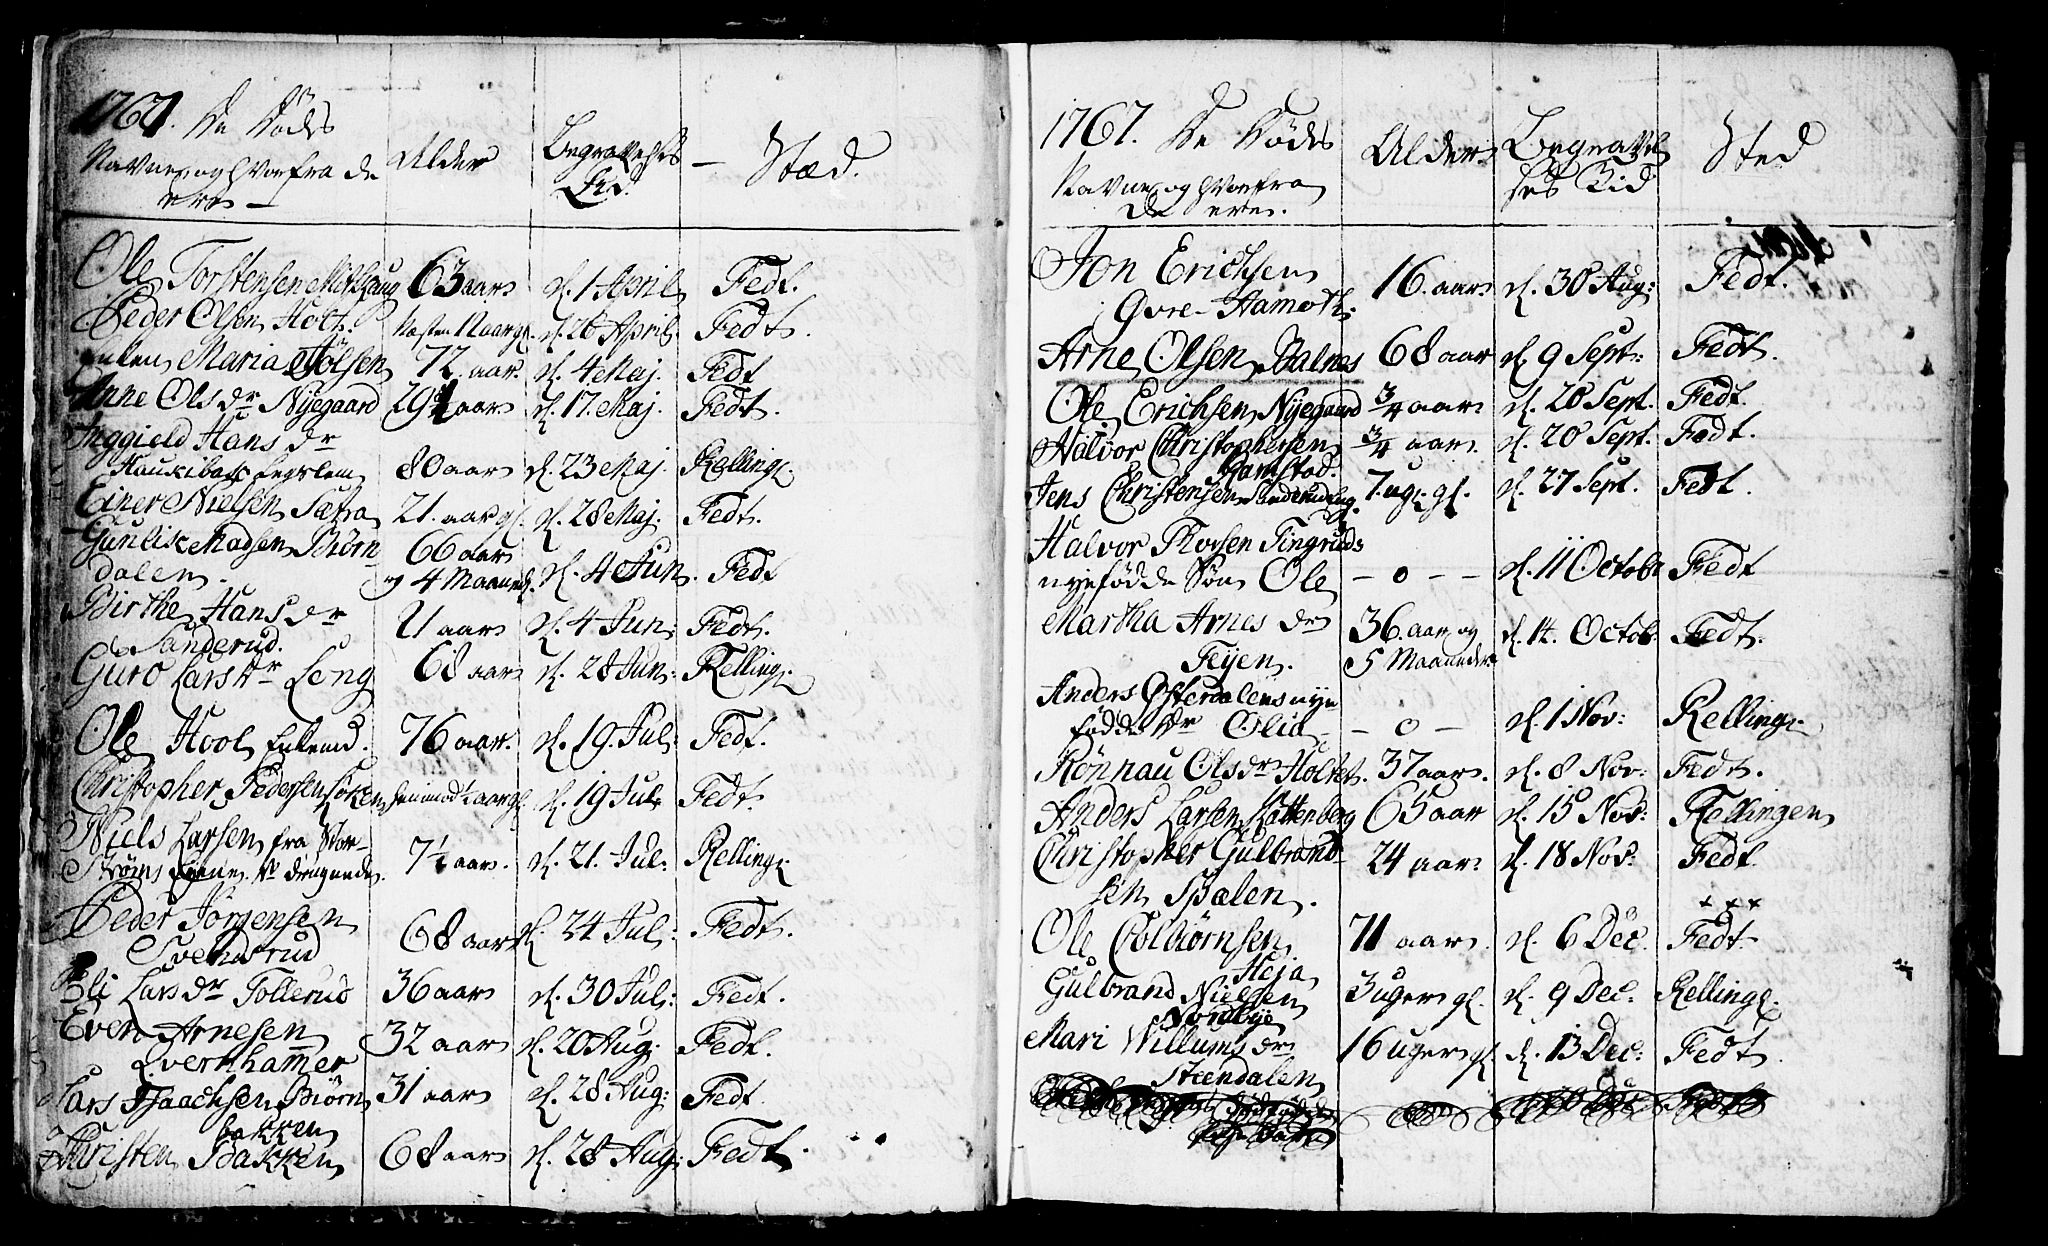 1767. De Dødes
Navne og hvorfra de
ere
Alder
Begravelses
Tid.
Stæd.
Ole Torstensen 63 aar d. 1 April Fedt.
Peder Olsen Holt. Næsten 12 aar gl. d. 26 April Fedt.
Enken Maria Jølsen 72 aar. d. 4 Maj. Fedt
Anne Olsdr Nyegaard 29 aar d. 17 Maj. Fedt.
Inggield Hansdr
80 aar d. 23 Maj. Relling.
Einer Nielsen Sætra 21. aar gl. d. 28 Maj. Fedt.
Gunlik Madsen Biørn
dalen. 66 aar
og 4 Maaned. d. 4 Jun. Fedt
Birthe Hansdr
Sanderud. 21 aar d. 4 Jun: Fedt.
Guro Larsdr Leng 68 aar d. 28 Jun: Relling.
Ole Hool Enkemd. 76 aar. d. 19. Jul: Fedt.
Christopher Pedersen d. 19 Jul: Fedt.
Niels Larsen fra Stor-
Strøms 7½ aar. d. 21. Jul: Relling.
Peder Jørgensen
Svendsrud 68 aar d. 24 Jul: Fedt.
Eli Larsdr Tollerud 36 aar d. 30 Jul: Fedt.
Even Arnesen
Qvernhamer 32 aar d. 20 Aug: Fedt.
Lars Isaachsen Biørn
bakken 31 aar d. 28 Aug: Fedt
Christen Bakken 68 aar d. 28 Aug: Fedt.
1767. De Døde
Navne og hvorfra
de ere.
Alder
Begravel
ses Tid
Sted
Jon Erichsen
Øvre-Hamoth: 16. aar d. 30 Aug: Fedt.
Arne Olsen Dalnes 68 aar d. 9 Sept: Fedt.
Ole Erichsen Nyegaard 3/4 aar d. 20 Sept. Fedt.
Halvor Christophersen
Garnstad. 3/4 aar. d. 20 Sept. Fedt.
Jens Christensen 7. ug. gl. d. 27 Sept. Fedt.
Halvor Thorsen Tingruds
nyefødde Søn Ole – o – – d. 11 Octobr Fedt
Martha Arnesdr
Feyen. 36. aar og
5 Maaneder d. 14. Octob: Fedt.
Anders Østerdalens nye
fødde Dr Olia – o – d. 1 Nov: Relling.
Rønnau Olsdr Holtet. 37 aar. d. 8 Nov: Fedt.
Anders Larsen Kattenberg 65 aar d. 15 Nov: Rellingen
Christopher Gulbrand-
sen Spalen. 24 aar d. 18 Nov: Fedt.
Ole Colbiørnsen
Heja 71 aar. d. 6 Dec. Fedt.
Gulbrand Nielsen
Nordbye 3 uger gl. d. 9 Dec: Relling.
Mari Willumsdr
Steendalen 16 uger gl. d. 13 Dec: Fedt.